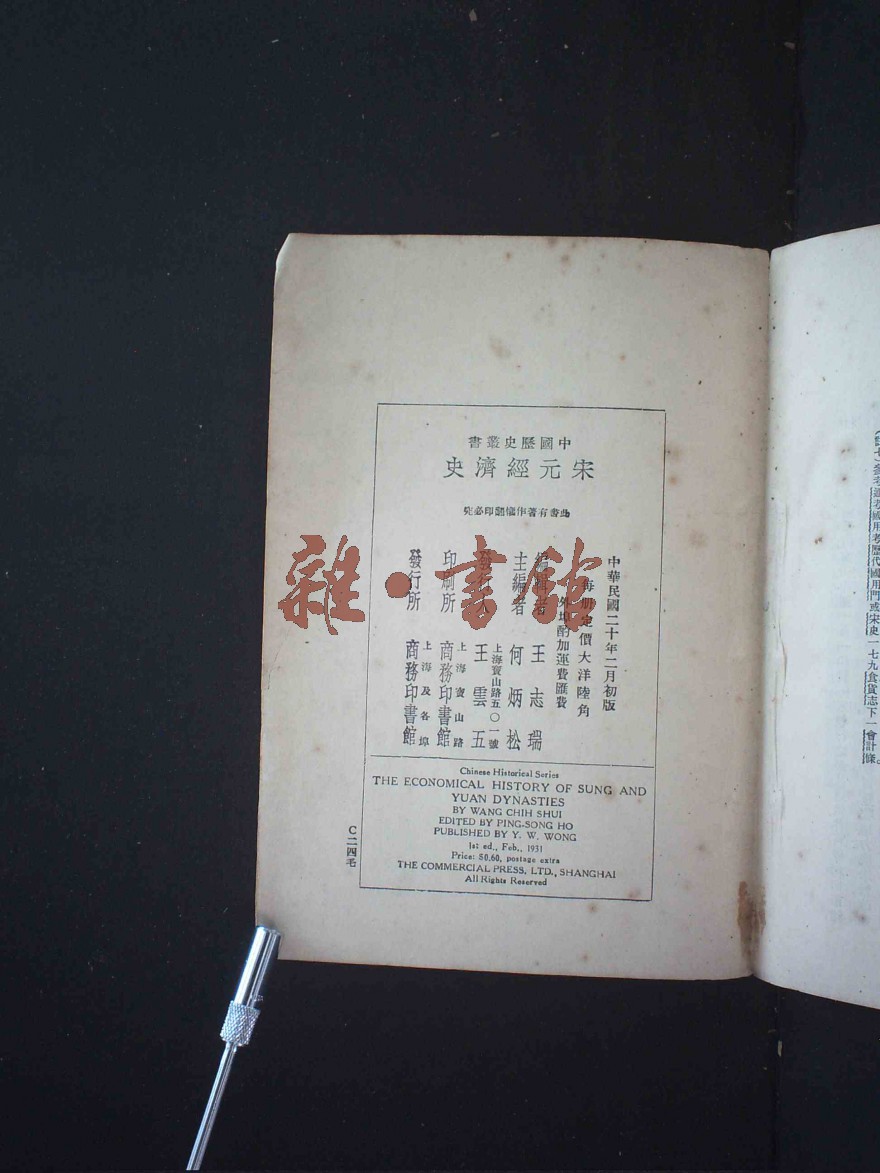 中國歷史叢書
宋元經濟史
此書有著作權翻印必究
中華民國二十年二月初版
每册定價大洋陸角
外埠酌加運費匯費
編輯者 王志瑞
主編者 何炳松
上海寶山路五〇一號
發行人 王雲五
上海寶山路
印刷所 商務印書館
上海及各埠
發行所 商務印書館
Chinese Historical Series
THE ECONOMICAL HISTORY OF SUNG AND
YUAN DYNASTIES
BY WANG CHIH SHUI
EDITED BY PING-SONG HO
PUBLISHED BY Y. W. WONG
1st ed., Feb., 1931
Price: $0.60, postage extra
THE COMMERCIAL PRESS, LTD., SHANGHAI
All Rights Reserved
C二四毛
雜·書館
(註七)參考通考國用考歷代國用門或宋史一七九食貨志下一會計條。